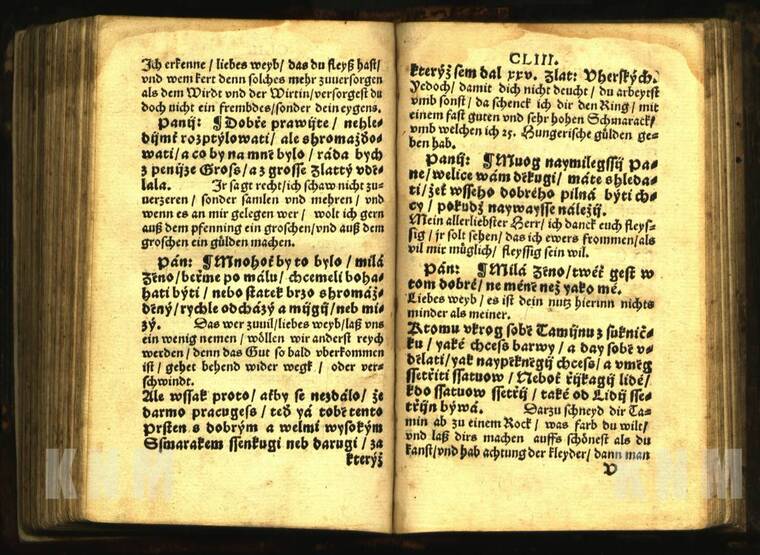 Ich erkenne / liebes weyb / das du fleyß hast /
vnd wem kert denn solches mehr zuuersorgen
als dem Wirdt vnd der Wirtin / versorgest du
doch nicht ein frembdes / sonder dein eygens.
Panij: ¶ Dobře prawijte / nehle-
dijmť rozptýlowati / ale shromažďo-
wati / a co by na mně bylo / ráda bych
z penijze Gross / a z grosse Zlatty vdě-
lala. Jr sagt recht / ich schaw nicht zu-
uerzeren / sonder samlen vnd mehren / vnd
wenn es an mir gelegen wer / wolt ich gern
auß dem pfenning ein groschen / vnd auß dem
groschen ein gülden machen.
Pán: ¶ Mnohoť by to bylo / milá
Ženo / beřme po málu / chcemeli boha-
hati býti / nebo statek brzo shromáž-
děný / rychle odcházý a mijgij / neb mi-
zý. Das wer zuuil / liebes weyb / laß vns
ein wenig nemen / wöllen wir anderst reych
werden / denn das Gut so bald vberkommen
ist / gehet behend wider wegk / oder ver-
schwindt.
Ale wssak proto / aťby se nezdálo / že
darmo pracugess / teď yá tobě tento
Prsten s dobrým a welmi wysokým
Ssmarakem ssenkugi neb darugi / za
kterýž
CLIII.
kterýž sem dal xxv. Zlat: Vherských.
Yedoch / damit dich nicht deucht / du arbeytst
vmb sonst / da schenck ich dir den Ring / mit
einem fast guten vnd sehr hohen Schmarack /
vmb welchen ich 25. Hungerische gülden ge-
ben hab.
Panij: ¶ Muog naymilegssij Pa-
ne / welice wám děkugi / máte shleda-
ti / žeť wsseho dobrého pilná býti ch-
cy / pokudž naywaysse náležij.
Mein allerliebster Herr / ich danck euch fleys-
sig / jr solt sehen / das ich ewers frommen / als
vil mir müglich / fleyssig sein wil.
Pán: ¶ Milá Ženo / twéť gest w
tom dobré / ne méně než yako mé.
Liebes weyb / es ist dein nutz hierinn nichts
minder als meiner.
Ktomu vkrog sobě Tamijnu z suknič-
ku / yaké chcess barwy / a day sobě v-
dělati / yak naypěkněgij chcess / a vměg
ssetřiti ssatuow / Neboť řijkagij lidé /
kdo ssatuow ssetřij / také od Lidij sse-
třijn býwá. Darzu schneyd dir Ta-
min ab zu einem Rock / was farb du wilt /
vnd laß dirs machen auffs schönest als du
kanst / vnd hab achtung der kleyder / dann man
V
KNM
KNM